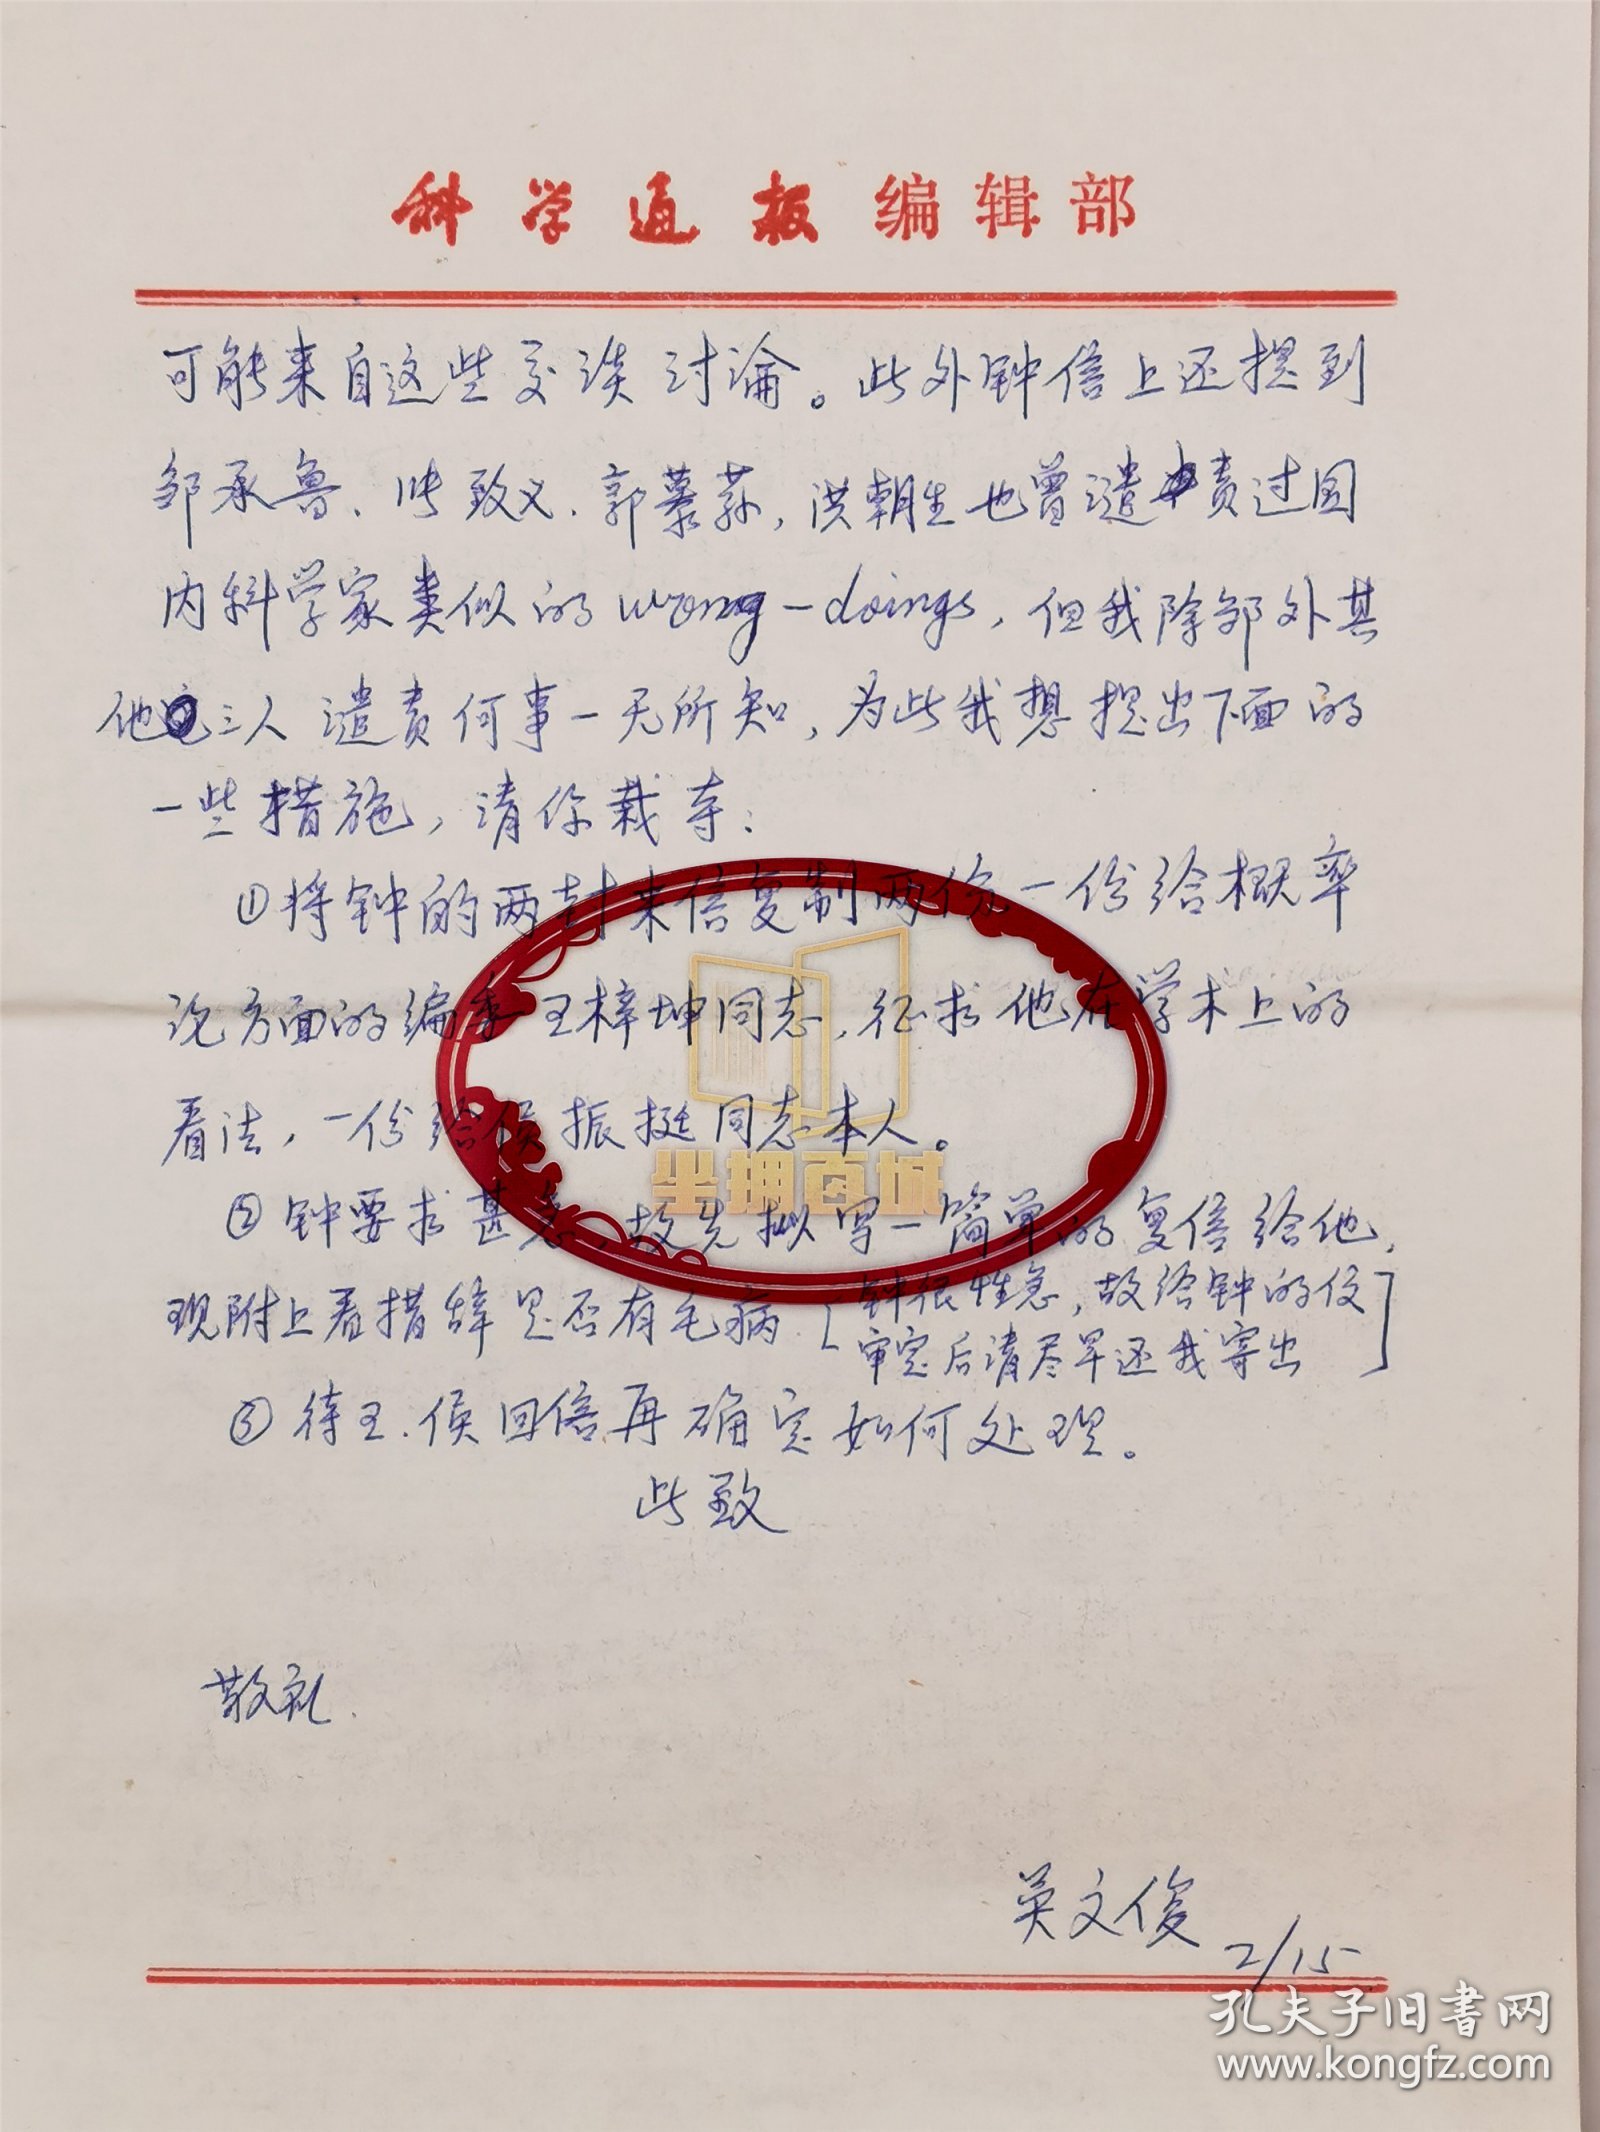 科学通报编辑部
可能来自这些交谈讨论。此外钟信上还提到
邹承鲁、张致义、郭慕荪,洪朝生也曾谴责过国
内科学家类似的wrong-doings,但我除邹外其
他三人谴责何事一无所知,为此我想提出下面的
一些措施,请你裁夺:
①将钟的两封来信复制两份一份给概率
论方面的编委王梓坤同志,征求他在学术上的
看法,一份给侯振挺同志本人。
②钟要求甚急,故先拟写一简单的复信给他,
现附上看措辞是否有毛病
[钟很性急,故给钟的信
审定后请尽早还我寄出]
③待王.侯回信再确定如何处理。
此致
敬礼.
吴文俊
2/15
坐拥百城
孔夫子旧书网
www.kongfz.com